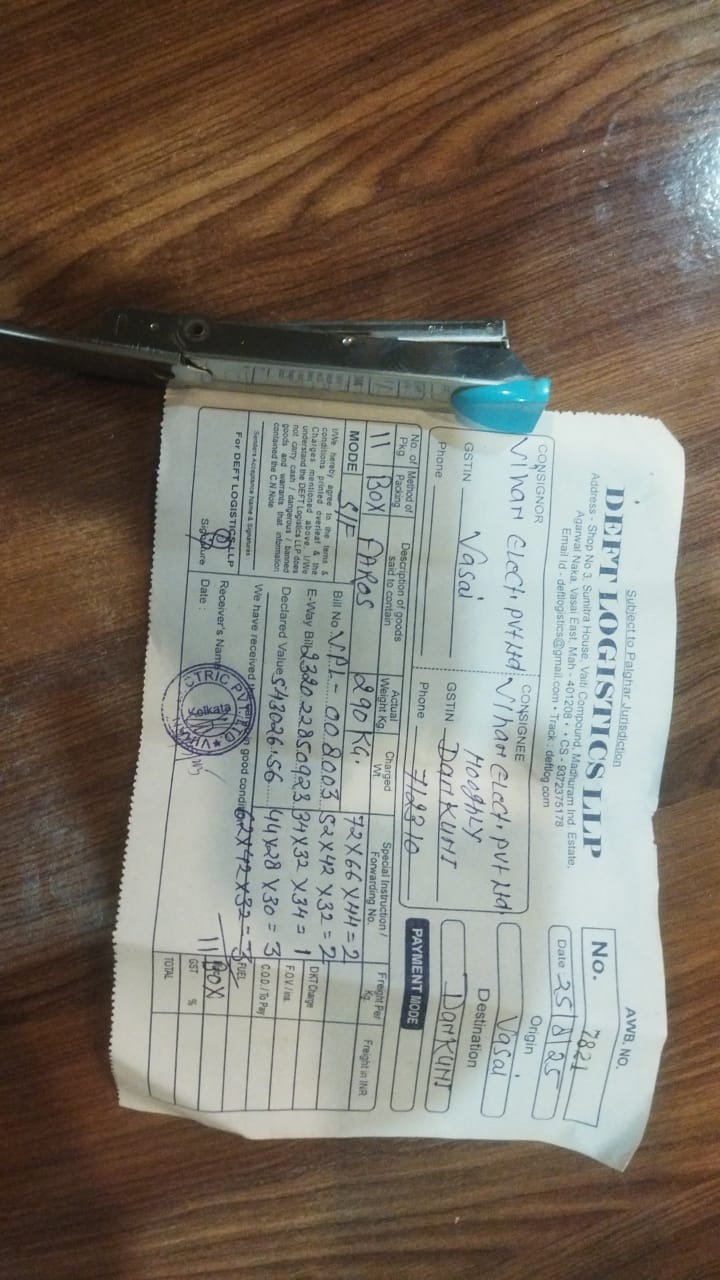 Subject to Palghar Jurisdiction
AWB. NO.
DEFT LOGISTICS LLP
No. 7821
Address - Shop No 3, Sumitra House, Vaiti Compound, Madhuram Ind. Estate,
Agarwal Naka, Vasai East, Mah - 401208 • CS - 9372375178
Email Id - deftlogistics@gmail.com • Track : deftlog.com
Date 25/8/25
CONSIGNOR
Vihan Elect. Pvt Ltd
Vasai
GSTIN
Phone
CONSIGNEE
Vihan Elect. Pvt Ltd
HOOGHLY
GSTIN DANKUNI
Phone 712310
Origin
Vasai
Destination
DANKUNI
PAYMENT MODE
No. of Pkg. Method of Packing Description of goods said to contain Actual Weight Kg. Charged Wt. Special Instruction / Forwarding No. Freight Per Kg. Freight in INR
11 BOX FAROS 290 KG. 72X66X44=2
MODE S/F Bill No. VPL-008003 52X42X32=2
E-Way Bill 232022850923 34X32X34=1 DKT Charge
Declared Value 543026.56 44X28X30=3 F.O.V / Ins.
62X42X32=3 C.O.D / To Pay
11 BOX FUEL
GST %
TOTAL
I/We hereby agree to the terms &
conditions printed overleaf & the
Charges mentioned above. I/We
understand the DEFT Logistics LLP does
not carry cash / dangerous / banned
goods and warrants that information
contained the C.N.Note
Senders Acceptance Name & Signatures
We have received the in good condition
For DEFT LOGISTICS LLP
Signature
Receiver's Name
Date :
TRIC PVT. LTD. VIHAN
Kolkata